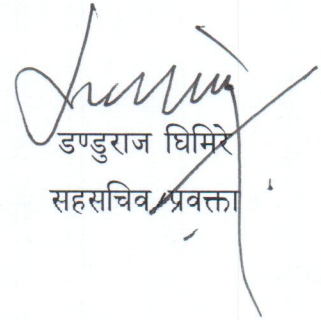 डण्डुराज घिमिरे
सहसचिव/प्रवक्ता